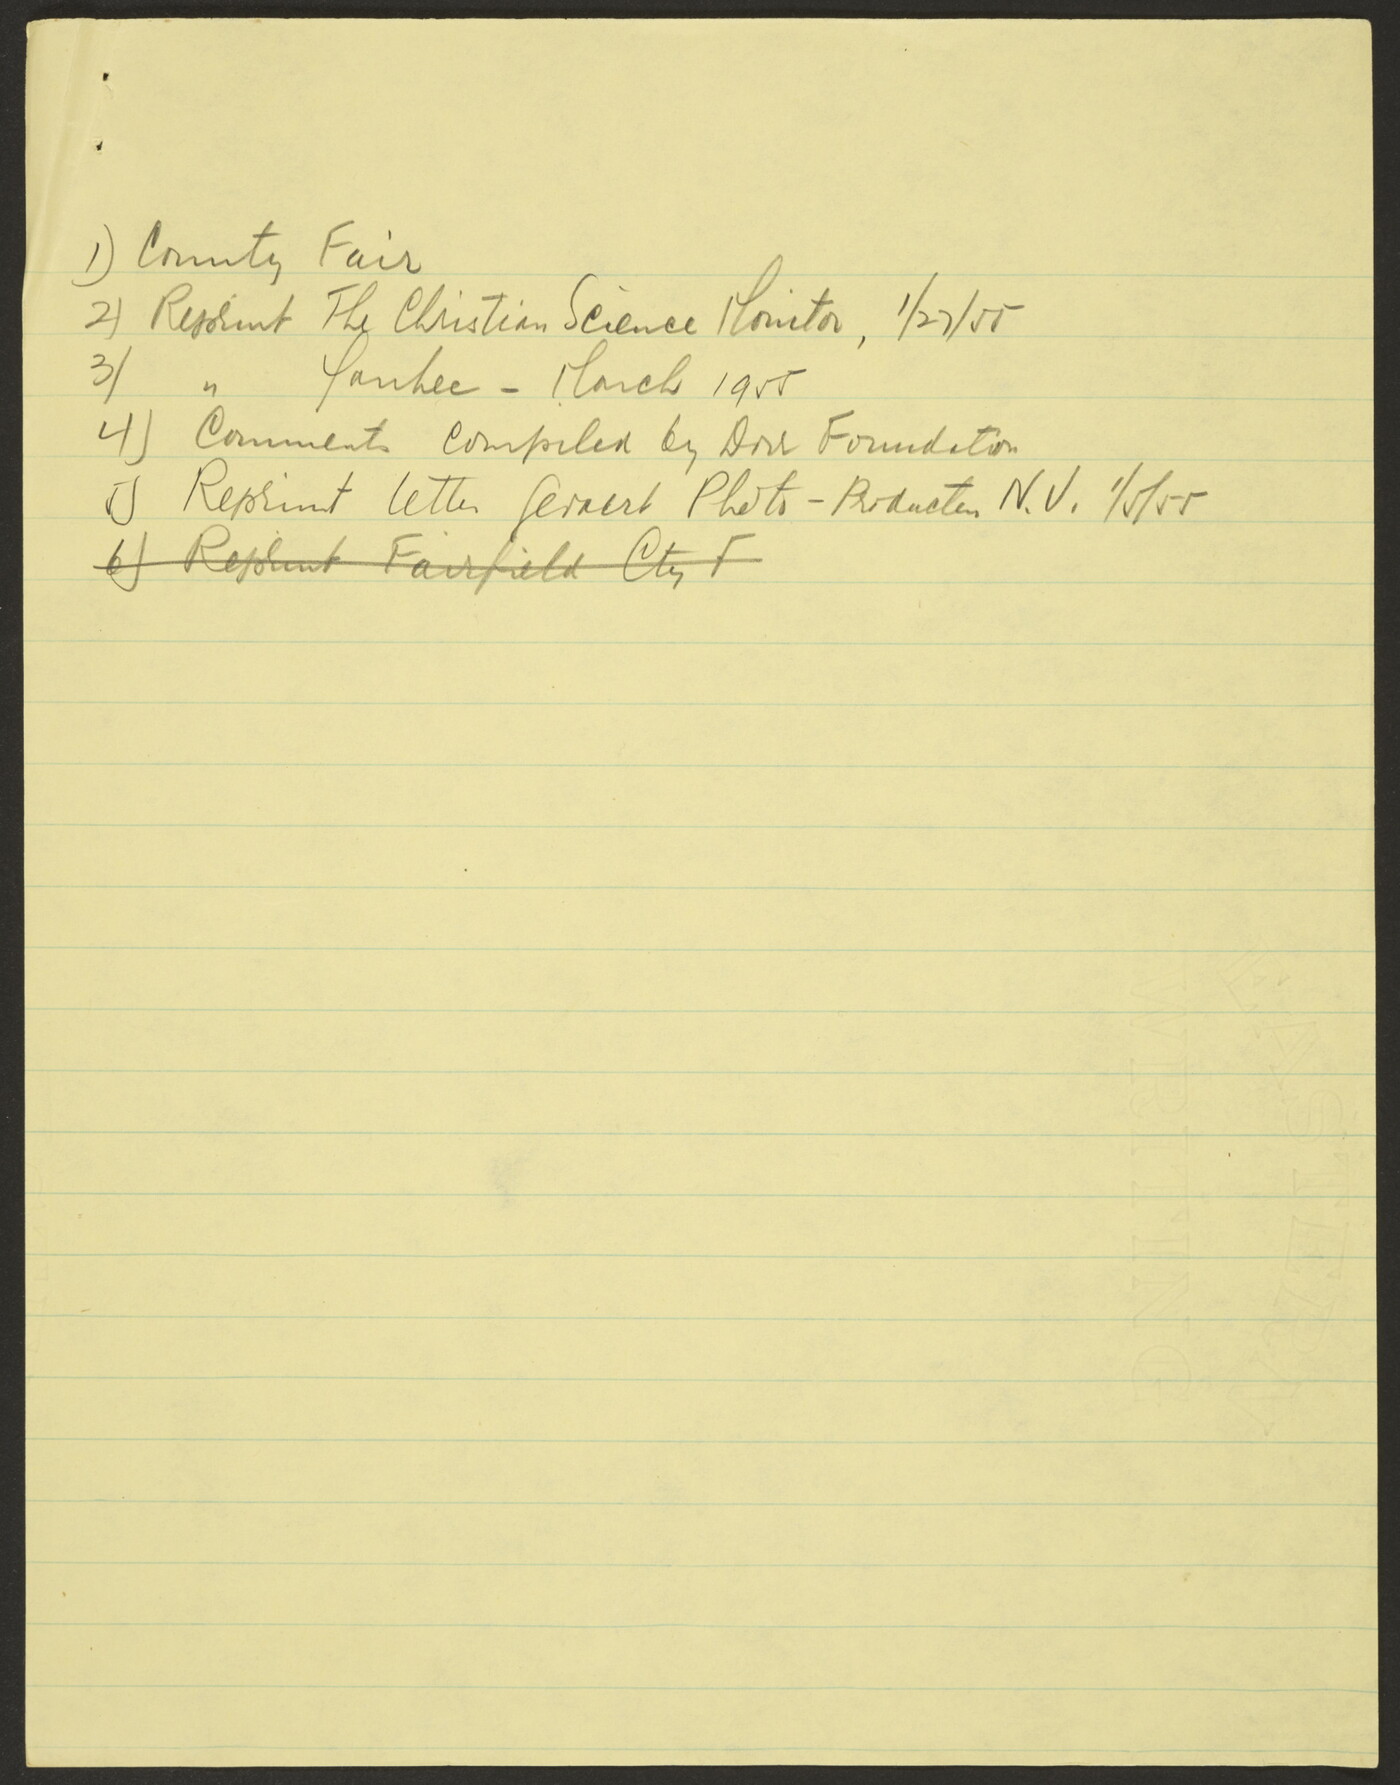 1) County Fair
2) Reprint The Christian Science Monitor, 1/27/55
3) " Yankee - March 1955
4) Comments compiled by Dorr Foundation
5) Reprint letter Gevaert Photo-Producten N.V. 1/5/55
6) Reprint Fairfield Cty F
WRITING
EASTERN